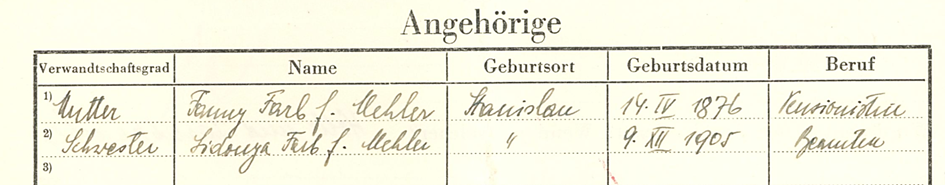 Angehörige
Verwandtschaftsgrad Name Geburtsort Geburtsdatum Beruf
1) Mutter Fanny Farb f. Mehler Stanislau 14. IV 1876 Pensionistin
2) Schwester Sidonya Farb f. Mehler " 9. XII 1905 Beamtin
3)